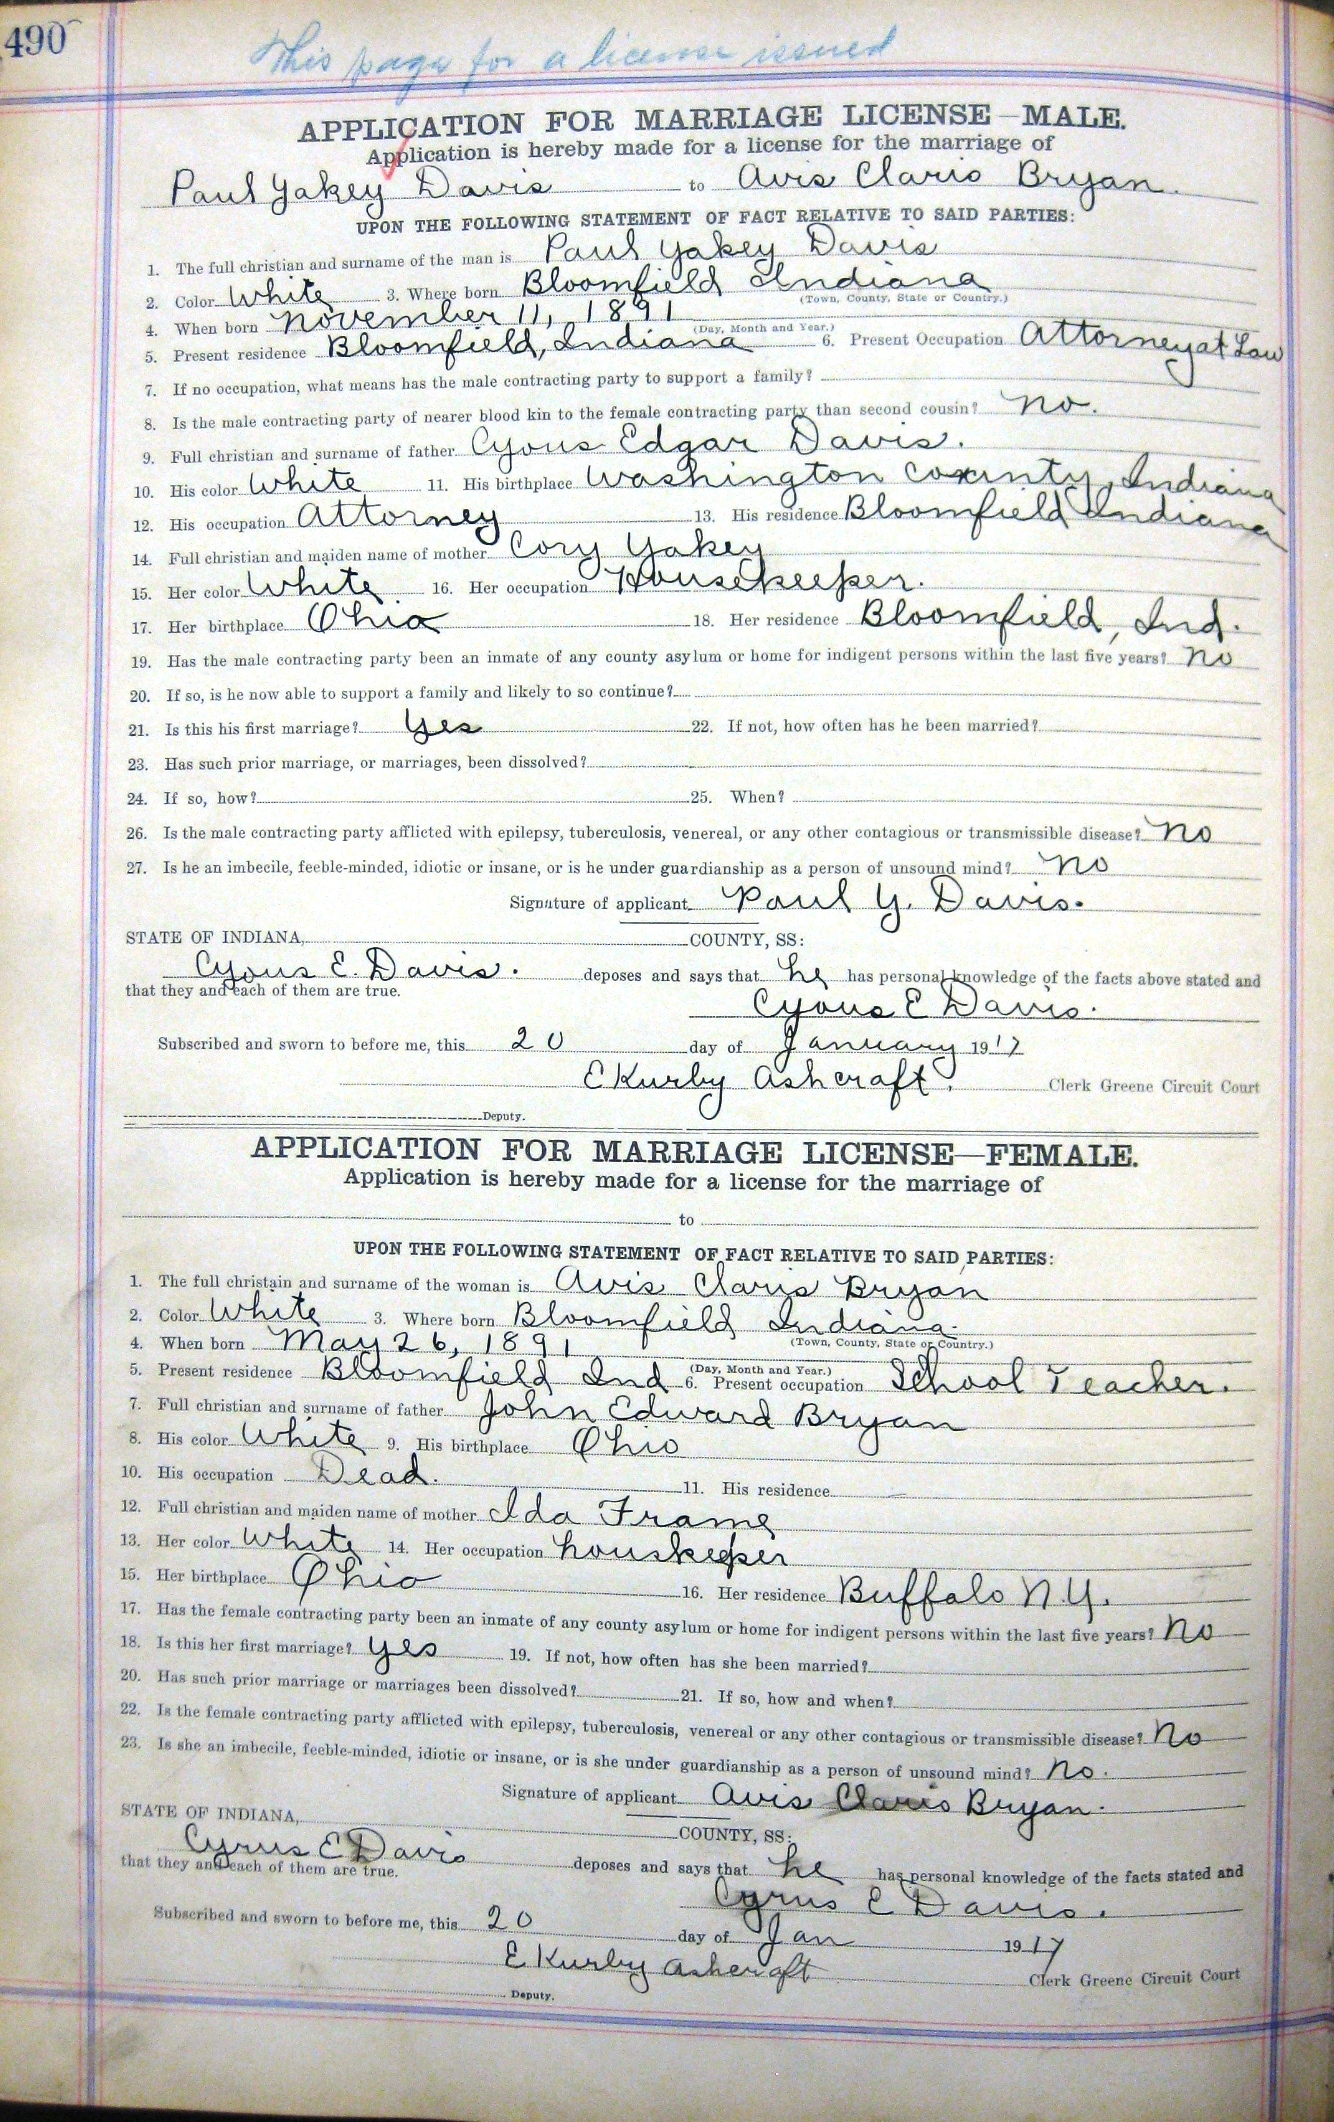 490
This page for a license issued
APPLICATION FOR MARRIAGE LICENSE—MALE.
Application is hereby made for a license for the marriage of
Paul Yakey Davis to Avis Claris Bryan.
UPON THE FOLLOWING STATEMENT OF FACT RELATIVE TO SAID PARTIES:
1. The full christian and surname of the man is Paul Yakey Davis
2. Color White 3. Where born Bloomfield Indiana
(Town, County, State or Country.)
4. When born November 11, 1891
(Day, Month and Year.)
5. Present residence Bloomfield, Indiana 6. Present Occupation Attorney at Law
7. If no occupation, what means has the male contracting party to support a family?
8. Is the male contracting party of nearer blood kin to the female contracting party than second cousin? no.
9. Full christian and surname of father Cyrus Edgar Davis.
10. His color White 11. His birthplace Washington County, Indiana
12. His occupation Attorney 13. His residence Bloomfield Indiana
14. Full christian and maiden name of mother Cory Yakey
15. Her color White 16. Her occupation Housekeeper.
17. Her birthplace Ohio 18. Her residence Bloomfield, Ind.
19. Has the male contracting party been an inmate of any county asylum or home for indigent persons within the last five years? no
20. If so, is he now able to support a family and likely to so continue?
21. Is this his first marriage? Yes 22. If not, how often has he been married?
23. Has such prior marriage, or marriages, been dissolved?
24. If so, how? 25. When?
26. Is the male contracting party afflicted with epilepsy, tuberculosis, venereal, or any other contagious or transmissible disease? no
27. Is he an imbecile, feeble-minded, idiotic or insane, or is he under guardianship as a person of unsound mind? no
Signature of applicant Paul Y. Davis.
STATE OF INDIANA, COUNTY, SS:
Cyrus E. Davis. deposes and says that he has personal knowledge of the facts above stated and
that they and each of them are true.
Cyrus E Davis.
Subscribed and sworn to before me, this 20 day of January 1917
E Kurby Ashcraft. Clerk Greene Circuit Court
Deputy.
APPLICATION FOR MARRIAGE LICENSE—FEMALE.
Application is hereby made for a license for the marriage of
to
UPON THE FOLLOWING STATEMENT OF FACT RELATIVE TO SAID PARTIES:
1. The full christain and surname of the woman is Avis Claris Bryan
2. Color White 3. Where born Bloomfield Indiana.
(Town, County, State or Country.)
4. When born May 26, 1891
(Day, Month and Year.)
5. Present residence Bloomfield Ind 6. Present occupation School Teacher.
7. Full christian and surname of father John Edward Bryan
8. His color White 9. His birthplace Ohio
10. His occupation Dead. 11. His residence
12. Full christian and maiden name of mother Ida Frame
13. Her color White 14. Her occupation houskeeper
15. Her birthplace Ohio 16. Her residence Buffalo N.Y.
17. Has the female contracting party been an inmate of any county asylum or home for indigent persons within the last five years? no
18. Is this her first marriage? yes 19. If not, how often has she been married?
20. Has such prior marriage or marriages been dissolved? 21. If so, how and when?
22. Is the female contracting party afflicted with epilepsy, tuberculosis, venereal or any other contagious or transmissible disease? No
23. Is she an imbecile, feeble-minded, idiotic or insane, or is she under guardianship as a person of unsound mind? no.
Signature of applicant Avis Claris Bryan.
STATE OF INDIANA, COUNTY, SS:
Cyrus E Davis deposes and says that he has personal knowledge of the facts stated and
that they and each of them are true.
Cyrus E Davis.
Subscribed and sworn to before me, this 20 day of Jan 1917
E Kurby Ashcraft Clerk Greene Circuit Court
Deputy.